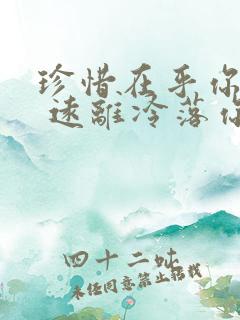 珍惜在乎你
远离冷落你
四十二吙
未经同意禁止转载